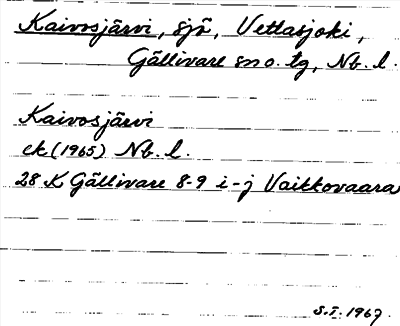 Kaivosjärvi, sjö, Vettasjoki,
Gällivare sn o. tg, Nb. l.
Kaivosjärvi
ek (1965) Nb. l.
28 K Gällivare 8-9 i-j Vaikkovaara
S.I. 1967.